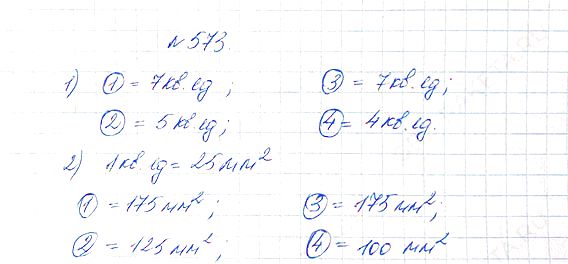 № 573.
1) ① = 7 кв. ед ; ③ = 7 кв. ед ;
② = 5 кв. ед ; ④ = 4 кв. ед.
2) 1 кв. ед = 25 мм²
① = 175 мм² ; ③ = 175 мм² ;
② = 125 мм² ; ④ = 100 мм²